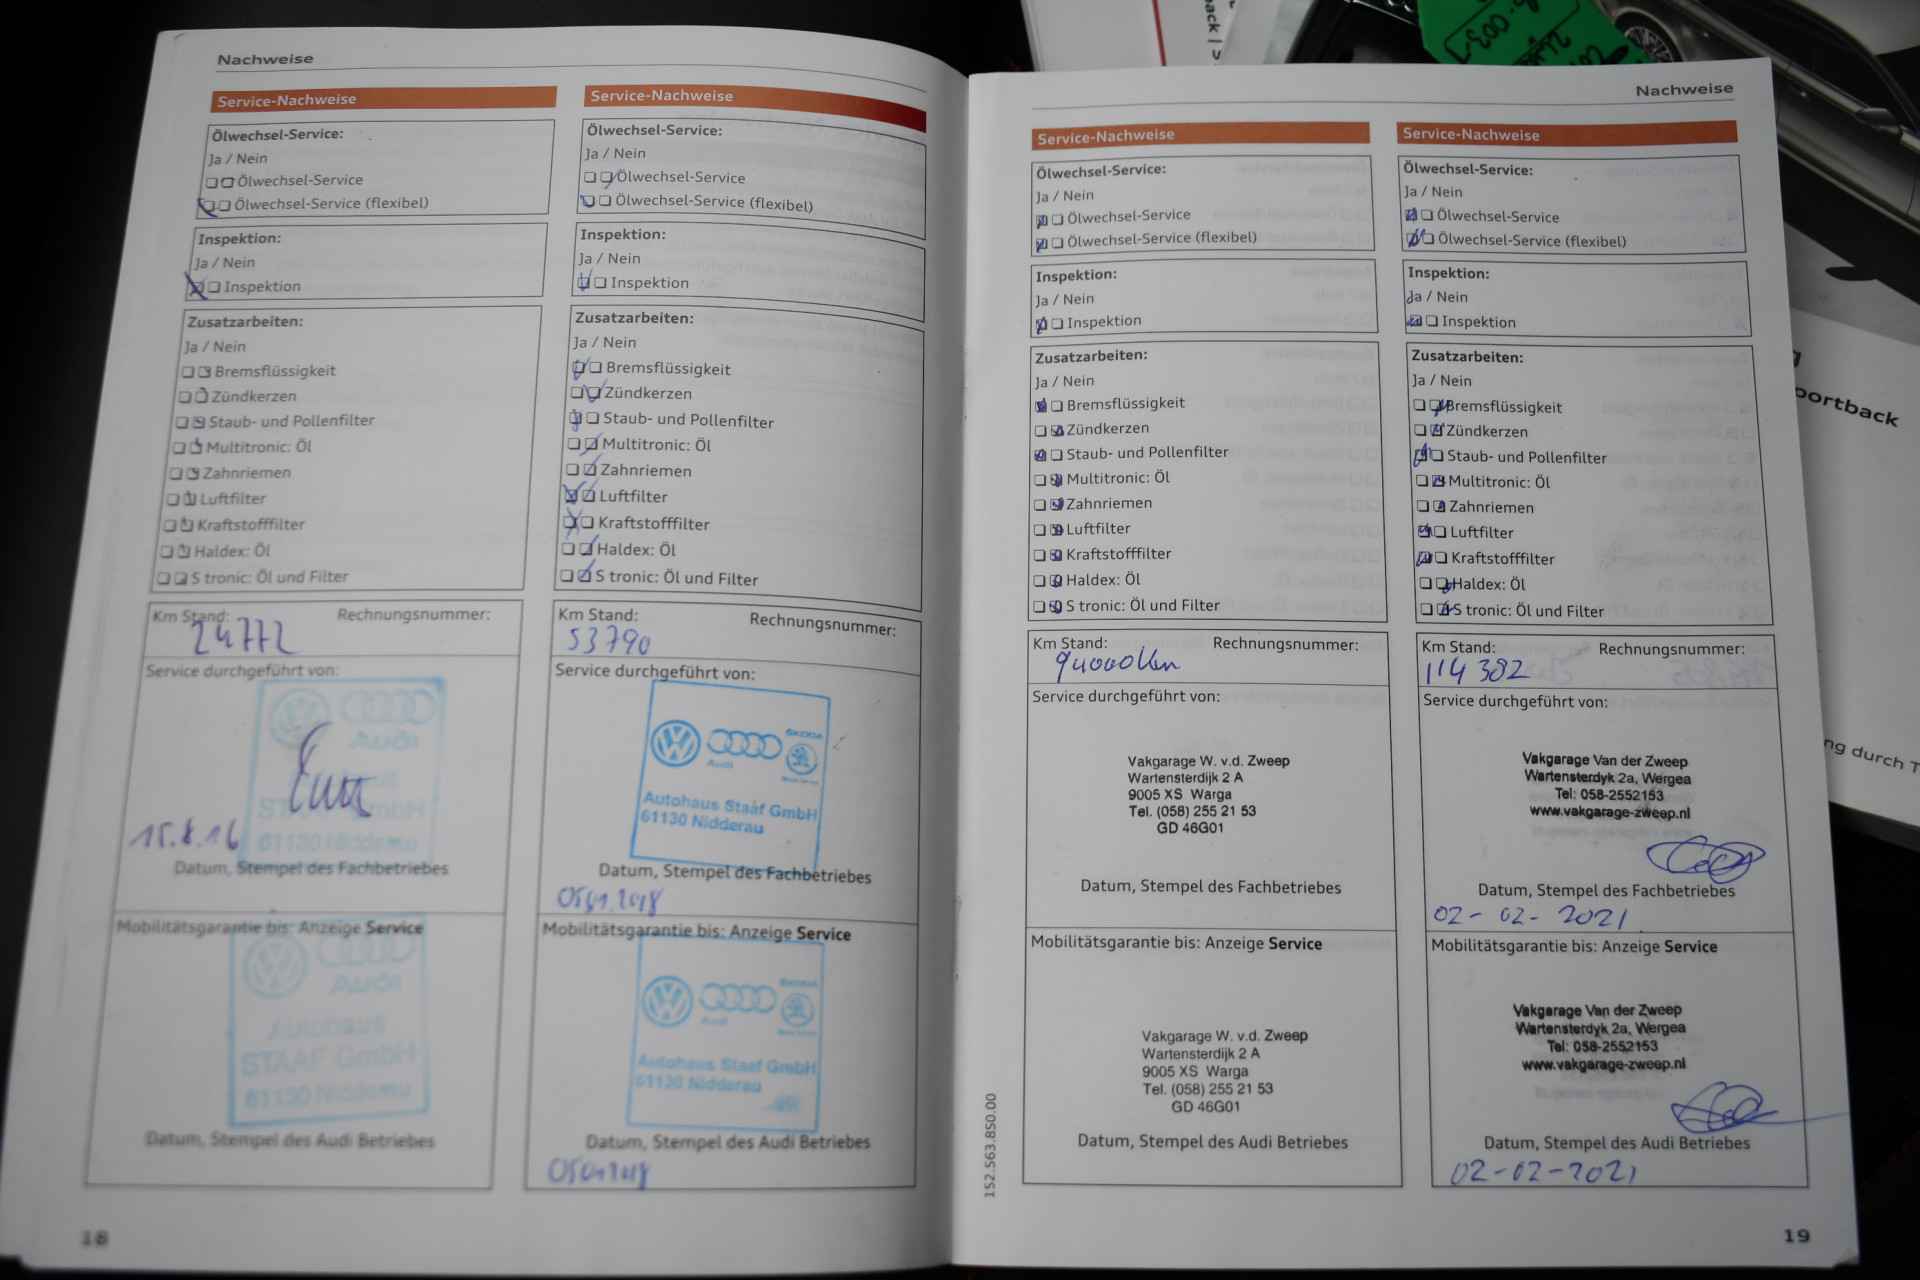 Nachweise
Service-Nachweise
Ölwechsel-Service:
Ja / Nein
Ölwechsel-Service
Ölwechsel-Service (flexibel)
Inspektion:
Ja / Nein
Inspektion
Zusatzarbeiten:
Ja / Nein
Bremsflüssigkeit
Zündkerzen
Staub- und Pollenfilter
Multitronic: Öl
Zahnriemen
Luftfilter
Kraftstofffilter
Haldex: Öl
S tronic: Öl und Filter
Km Stand: Rechnungsnummer:
24772
Service durchgeführt von:
Audi
STAAF GmbH
61130 Nidderau
15.8.16
Datum, Stempel des Fachbetriebes
Mobilitätsgarantie bis: Anzeige Service
Audi
Autohaus
STAAF GmbH
61130 Nidderau
Datum, Stempel des Audi Betriebes
18
Service-Nachweise
Ölwechsel-Service:
Ja / Nein
Ölwechsel-Service
Ölwechsel-Service (flexibel)
Inspektion:
Ja / Nein
Inspektion
Zusatzarbeiten:
Ja / Nein
Bremsflüssigkeit
Zündkerzen
Staub- und Pollenfilter
Multitronic: Öl
Zahnriemen
Luftfilter
Kraftstofffilter
Haldex: Öl
S tronic: Öl und Filter
Km Stand: Rechnungsnummer:
53790
Service durchgeführt von:
ŠKODA
Audi
Autohaus Staaf GmbH
61130 Nidderau
Datum, Stempel des Fachbetriebes
05.01.2018
Mobilitätsgarantie bis: Anzeige Service
ŠKODA
Audi
Autohaus Staaf GmbH
61130 Nidderau
Datum, Stempel des Audi Betriebes
05012018
Nachweise
Service-Nachweise
Ölwechsel-Service:
Ja / Nein
Ölwechsel-Service
Ölwechsel-Service (flexibel)
Inspektion:
Ja / Nein
Inspektion
Zusatzarbeiten:
Ja / Nein
Bremsflüssigkeit
Zündkerzen
Staub- und Pollenfilter
Multitronic: Öl
Zahnriemen
Luftfilter
Kraftstofffilter
Haldex: Öl
S tronic: Öl und Filter
Km Stand: Rechnungsnummer:
94000 km
Service durchgeführt von:
Vakgarage W. v.d. Zweep
Wartensterdijk 2 A
9005 XS Warga
Tel. (058) 255 21 53
GD 46G01
Datum, Stempel des Fachbetriebes
Mobilitätsgarantie bis: Anzeige Service
Vakgarage W. v.d. Zweep
Wartensterdijk 2 A
9005 XS Warga
Tel. (058) 255 21 53
GD 46G01
Datum, Stempel des Audi Betriebes
152.563.850.00
Service-Nachweise
Ölwechsel-Service:
Ja / Nein
Ölwechsel-Service
Ölwechsel-Service (flexibel)
Inspektion:
Ja / Nein
Inspektion
Zusatzarbeiten:
Ja / Nein
Bremsflüssigkeit
Zündkerzen
Staub- und Pollenfilter
Multitronic: Öl
Zahnriemen
Luftfilter
Kraftstofffilter
Haldex: Öl
S tronic: Öl und Filter
Km Stand: Rechnungsnummer:
114 382
Service durchgeführt von:
Vakgarage Van der Zweep
Wartensterdyk 2a, Wergea
Tel: 058-2552153
www.vakgarage-zweep.nl
Datum, Stempel des Fachbetriebes
02-02-2021
Mobilitätsgarantie bis: Anzeige Service
Vakgarage Van der Zweep
Wartensterdyk 2a, Wergea
Tel: 058-2552153
www.vakgarage-zweep.nl
Datum, Stempel des Audi Betriebes
02-02-2021
19
portback
ng durch T